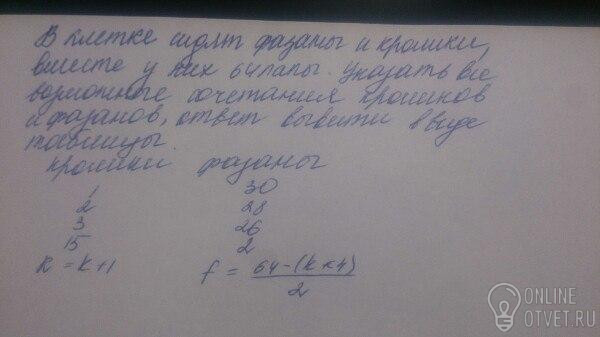 В клетке сидят фазаны и кролики,
вместе у них 64 лапы. Указать все
возможные сочетания кроликов
и фазанов, ответ вывести в виде
таблицы.
кролики фазаны
1 30
2 28
3 26
15 2
k = k+1 f = 64-(k×4)
2
ONLINE
OTVET.RU